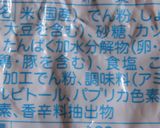 名、米(国産)、でん粉、し
大豆を含む)、砂糖、カツ
たんぱく加水分解物(卵・
鶏・豚を含む)、食塩、こ
加工でん粉、調味料(ア
ルビトール、パプリカ色素
素、香辛料抽出物